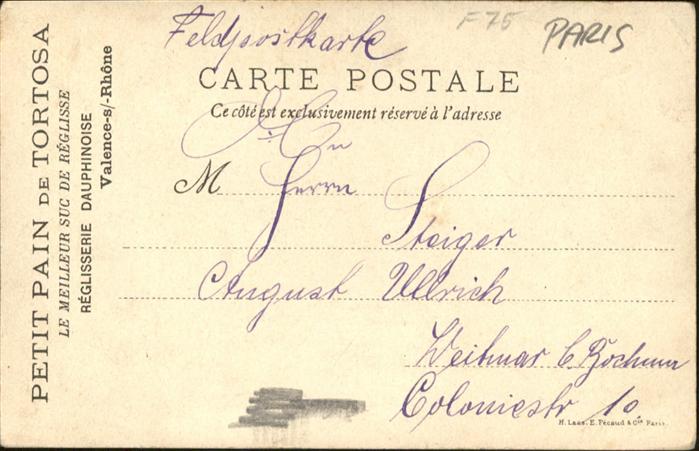 Feldpostkarte
F75
PARIS
CARTE POSTALE
Ce côté est exclusivement réservé à l'adresse
An
M Herrn
Steiger
August Ullrich
Weitmar b. Bochum
Coloniestr 10
H. Laas, E. Pécaud & Cie Paris
PETIT PAIN DE TORTOSA
LE MEILLEUR SUC DE RÉGLISSE
RÉGLISSERIE DAUPHINOISE
Valence-s/-Rhône